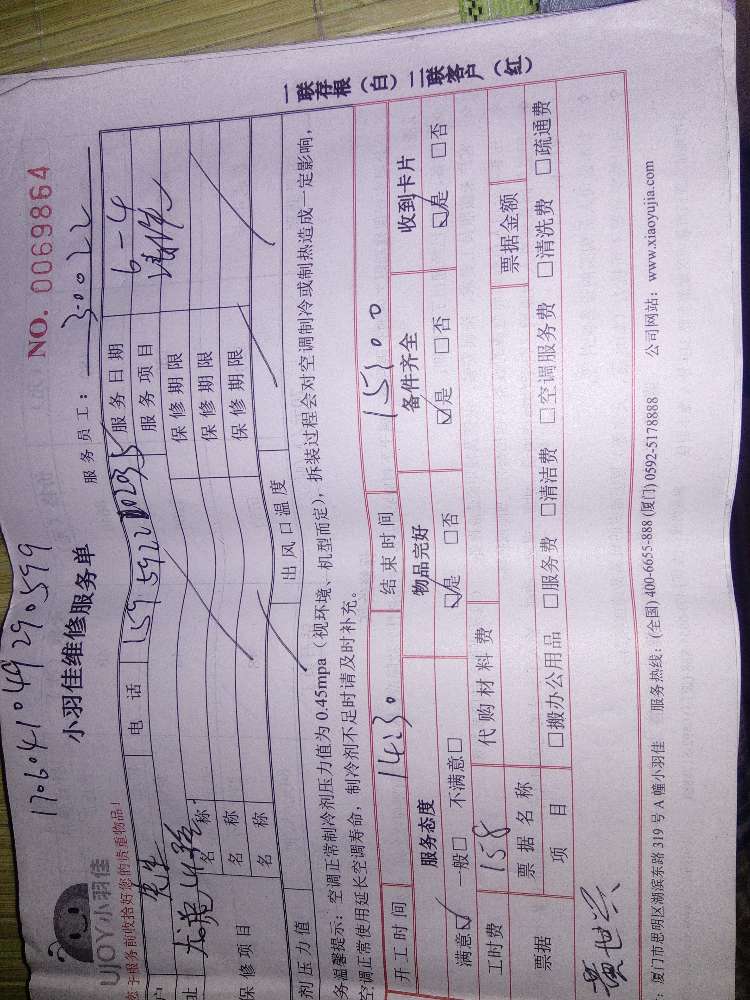 1706041049290599
NO. 0069864
UJOY小羽佳
小羽佳维修服务单
服务员工： 30022
您于服务前收拾好您的贵重物品！
户
电 话
服务日期 6-4
址
服务项目
保修项目
名 称
保修期限
名 称
保修期限
名 称
保修期限
剂压力值
出风口温度
务温馨提示：空调正常制冷剂压力值为 0.45mpa（视环境、机型而定），拆装过程会对空调制冷或制热造成一定影响，
空调正常使用延长空调寿命，制冷剂不足时请及时补充。
开工时间 14:30 结束时间 15:00
服务态度 物品完好 备件齐全 收到卡片
满意☑ 一般□ 不满意□ ☑是 □否 ☑是 □否 ☑是 □否
工时费 158 代购材料费
票据 票据名称 票据金额
项 目 □搬办公用品 □服务费 □清洁费 □空调服务费 □清洗费 □疏通费
黄世兴
厦门市思明区湖滨东路 319 号 A 幢小羽佳 服务热线：(全国) 400-6655-888 (厦门) 0592-5178888 公司网站：www.xiaoyujia.com
一联存根（白）二联客户（红）